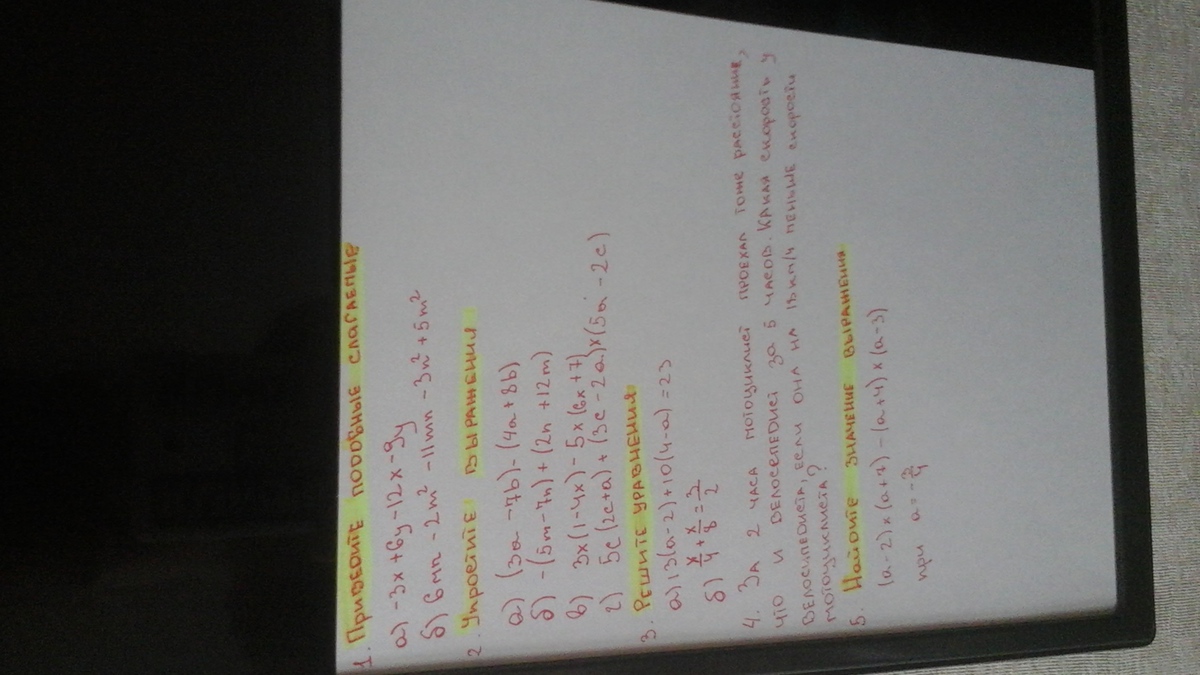 1. Приведите подобные слагаемые
а) -3x+6y-12x-9y
б) 6mn-2m²-11mn-3n²+5m²
2. Упростите выражения
а) (3a-7b)-(4a+8b)
б) -(5m-7n)+(2n+12m)
в) 3x(1-4x)-5x(6x+7)
г) 5c(2c+a)+(3c-2a)x(5a-2c)
3. Решите уравнения
а) 13(a-2)+10(4-a)=23
б) x/4+x/8=3/2
4. За 2 часа мотоциклист проехал тоже расстояние,
что и велосепедист за 5 часов. Какая скорость у
велосипедиста, если она на 18 км/ч меньше скорости
мотоциклиста?
5. Найдите значение выражения
(a-2)x(a+7)-(a+4)x(a-3)
при a=-3/4